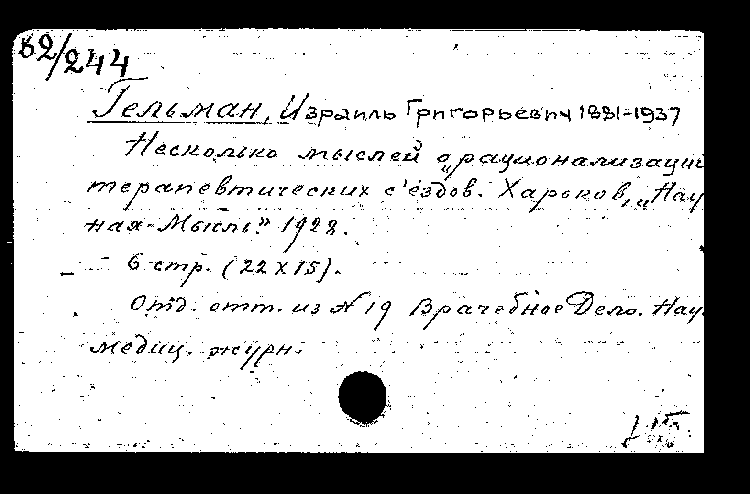 82/244
Гельман, Израиль Григорьевич 1881-1937
Несколько мыслей о „рационализации
терапевтических с'ездов. Харьков, „Науч
ная-Мысль" 1928.
6 стр. (22 x 15).
Отд. отт. из № 19 Врачебное Дело. Науч
медиц. журн.